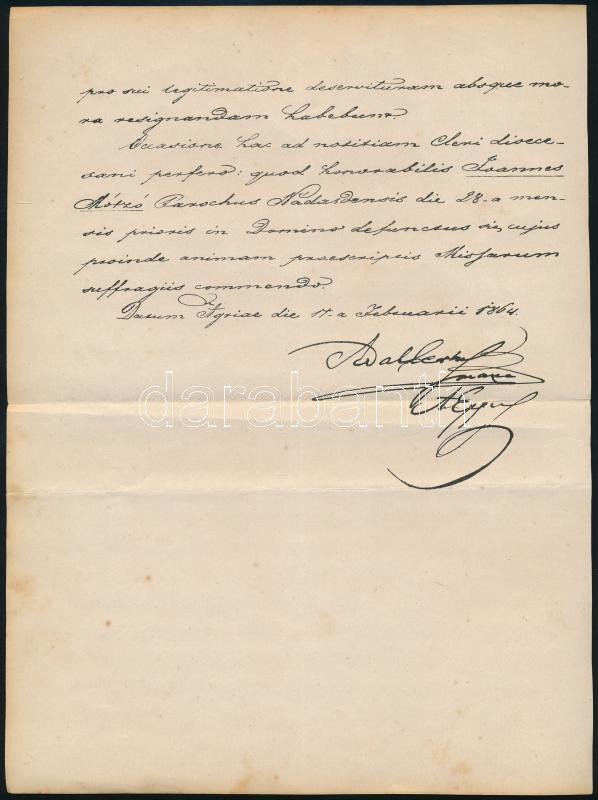 pro sui legitimatione deservituram absque mo-
ra resignandam habebunt.
Occasione hac ad notitiam Cleri dioece-
sani perfero: quod honorabilis Joannes
Mótzó Parochus Nádasdensis die 28-a men-
sis prioris in Domino defunctus sit, cujus
proinde animam praescriptis Missarum
suffragiis commendo.
Datum Agriae die 17-a Februarii 1864.
Adalbertus
mpria
AEppus
darabanth